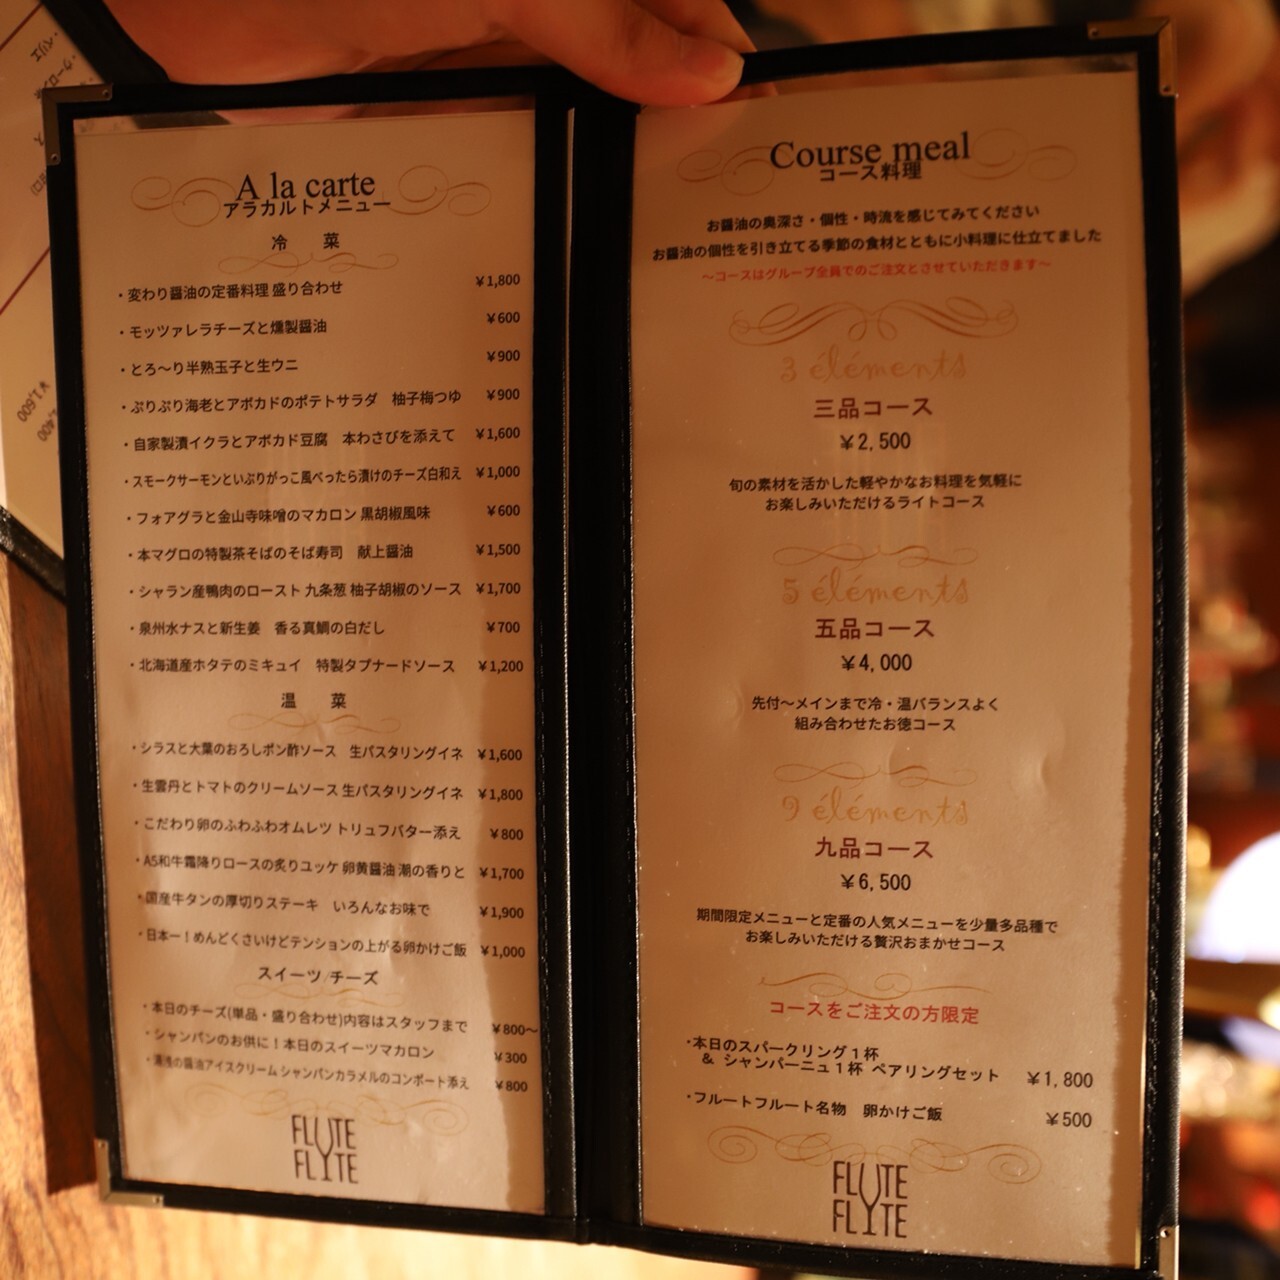 A la carte
アラカルトメニュー
冷 菜
・変わり醤油の定番料理 盛り合わせ ￥1,800
・モッツァレラチーズと燻製醤油 ￥600
・とろ〜り半熟玉子と生ウニ ￥900
・ぷりぷり海老とアボカドのポテトサラダ 柚子梅つゆ ￥900
・自家製漬イクラとアボカド豆腐 本わさびを添えて ￥1,600
・スモークサーモンといぶりがっこ風べったら漬けのチーズ白和え ￥1,000
・フォアグラと金山寺味噌のマカロン 黒胡椒風味 ￥600
・本マグロの特製茶そばのそば寿司 献上醤油 ￥1,500
・シャラン産鴨肉のロースト 九条葱 柚子胡椒のソース ￥1,700
・泉州水ナスと新生姜 香る真鯛の白だし ￥700
・北海道産ホタテのミキュイ 特製タプナードソース ￥1,200
温 菜
・シラスと大葉のおろしポン酢ソース 生パスタリングイネ ￥1,600
・生雲丹とトマトのクリームソース 生パスタリングイネ ￥1,800
・こだわり卵のふわふわオムレツ トリュフバター添え ￥800
・A5和牛霜降りロースの炙りユッケ 卵黄醤油 潮の香りと ￥1,700
・国産牛タンの厚切りステーキ いろんなお味で ￥1,900
・日本一！めんどくさいけどテンションの上がる卵かけご飯 ￥1,000
スイーツ/チーズ
・本日のチーズ(単品・盛り合わせ)内容はスタッフまで ￥800〜
・シャンパンのお供に！本日のスイーツマカロン ￥300
・湯浅の醤油アイスクリーム シャンパンカラメルのコンポート添え ￥800
FLUTE
FLYTE
Course meal
コース料理
お醤油の奥深さ・個性・時流を感じてみてください
お醤油の個性を引き立てる季節の食材とともに小料理に仕立てました
〜コースはグループ全員でのご注文とさせていただきます〜
3 éléments
三品コース
￥2,500
旬の素材を活かした軽やかなお料理を気軽に
お楽しみいただけるライトコース
5 éléments
五品コース
￥4,000
先付〜メインまで冷・温バランスよく
組み合わせたお徳コース
9 éléments
九品コース
￥6,500
期間限定メニューと定番の人気メニューを少量多品種で
お楽しみいただける贅沢おまかせコース
コースをご注文の方限定
・本日のスパークリング１杯
& シャンパーニュ１杯 ペアリングセット ￥1,800
・フルートフルート名物 卵かけご飯 ￥500
FLUTE
FLYTE
￥1,600